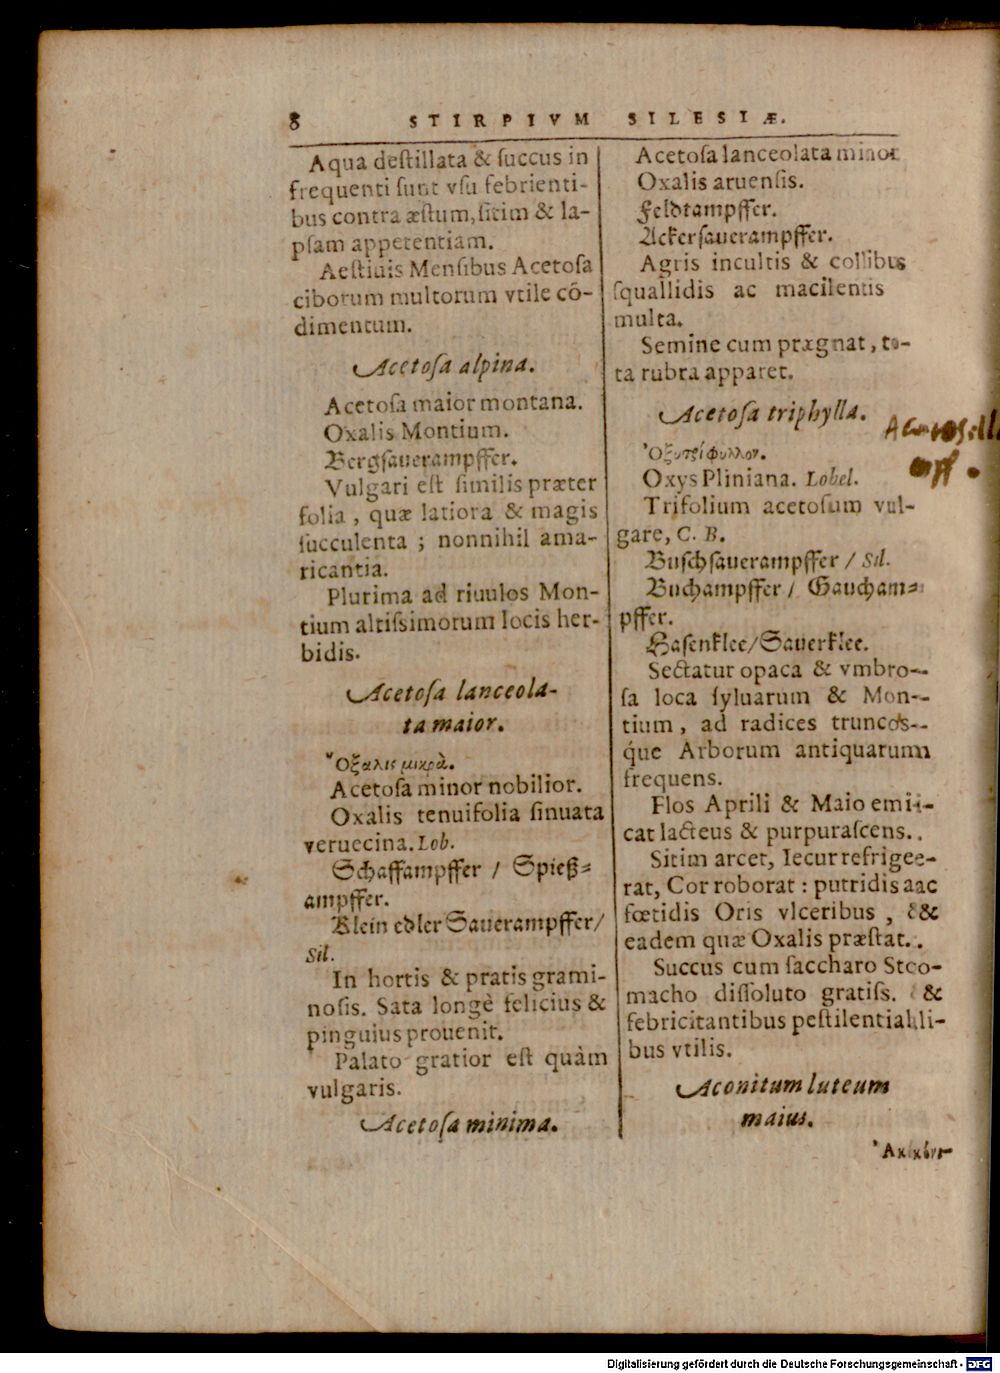 8 STIRPIVM SILESIÆ.
Aqua deſtillata & ſuccus in
frequenti ſunt vſu febrienti-
bus contra æſtum, ſitim & la-
pſam appetentiam.
Aeſtiuis Menſibus Acetoſa
ciborum multorum vtile cō-
dimentum.
Acetoſa alpina.
Acetoſa maior montana.
Oxalis Montium.
Bergſauerampffer.
Vulgari eſt ſimilis præter
folia, quæ latiora & magis
ſucculenta ; nonnihil ama-
ricantia.
Plurima ad riuulos Mon-
tium altiſsimorum locis her-
bidis.
Acetoſa lanceola-
ta maior.
Ὀξαλις μικρὰ.
Acetoſa minor nobilior.
Oxalis tenuifolia ſinuata
veruecina. Lob.
Schaffampffer / Spieß⸗
ampffer.
Klein edler Sauerampffer/
Sil.
In hortis & pratis grami-
noſis. Sata longè felicius &
pinguius prouenit.
Palato gratior eſt quàm
vulgaris.
Acetoſa minima.
Acetoſa lanceolata minor
Oxalis aruenſis.
Feldtampffer.
Ackerſauerampffer.
Agris incultis & collibus
ſquallidis ac macilentis
multa.
Semine cum prægnat, to-
ta rubra apparet.
Acetoſa triphylla.
Ὀξυτρίφυλλον.
Oxys Pliniana. Lobel.
Trifolium acetoſum vul-
gare, C. B.
Buſchſauerampffer / Sil.
Buchampffer / Gaucham⸗
pffer.
Haſenklee/Sauerklee.
Sectatur opaca & vmbro-
ſa loca ſyluarum & Mon-
tium, ad radices truncos-
q́ue Arborum antiquarum
frequens.
Flos Aprili & Maio emi-
cat lacteus & purpuraſcens.
Sitim arcet, Iecur refrige-
rat, Cor roborat : putridis ac
fœtidis Oris vlceribus, &
eadem quæ Oxalis præſtat.
Succus cum ſaccharo Sto-
macho diſſoluto gratiſs. &
febricitantibus peſtilentiali-
bus vtilis.
Aconitum luteum
maius.
Digitalisierung gefördert durch die Deutsche Forschungsgemeinschaft - DFG